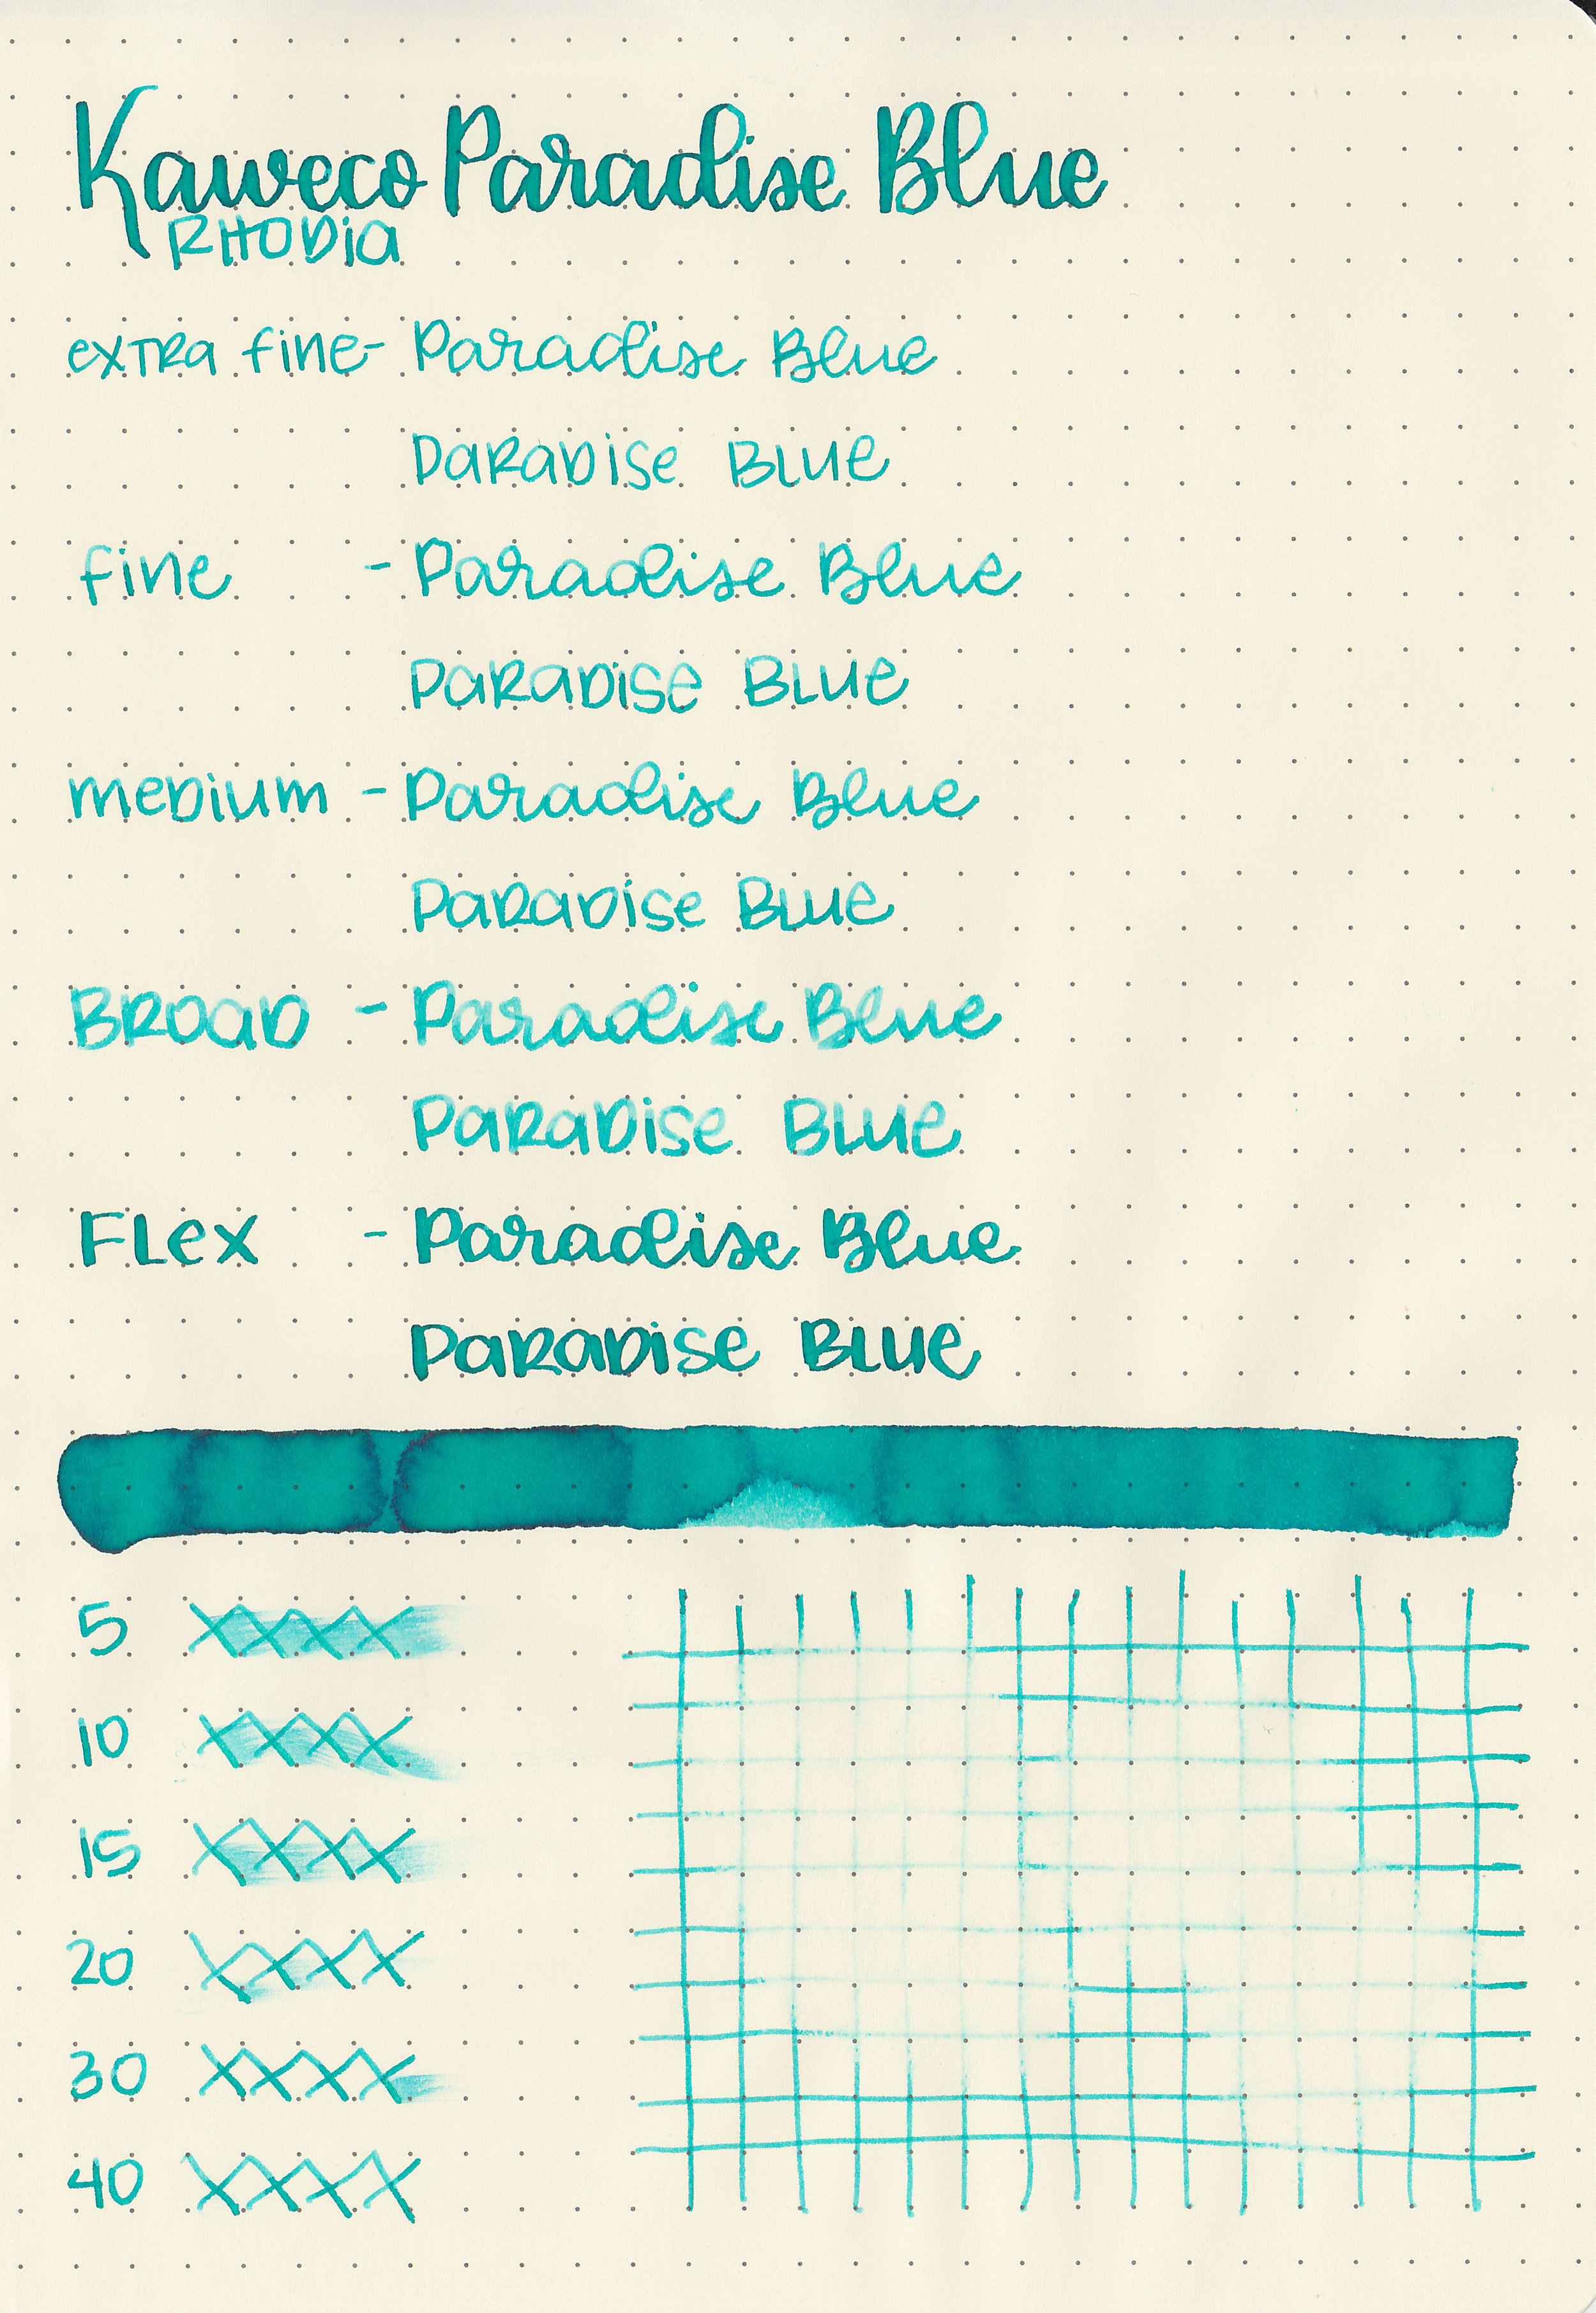 Kaweco Paradise Blue
RHODia
exTRa fine- Paradise Blue
PaRaDise BLue
fine - Paradise Blue
PaRaDise BLue
meDium - Paradise Blue
PaRaDise BLue
BROaD - Paradise Blue
PaRaDise BLue
FLex - Paradise Blue
PaRaDise BLue
5 XXXX
10 XXXX
15 XXXX
20 XXXX
30 XXXX
40 XXXX